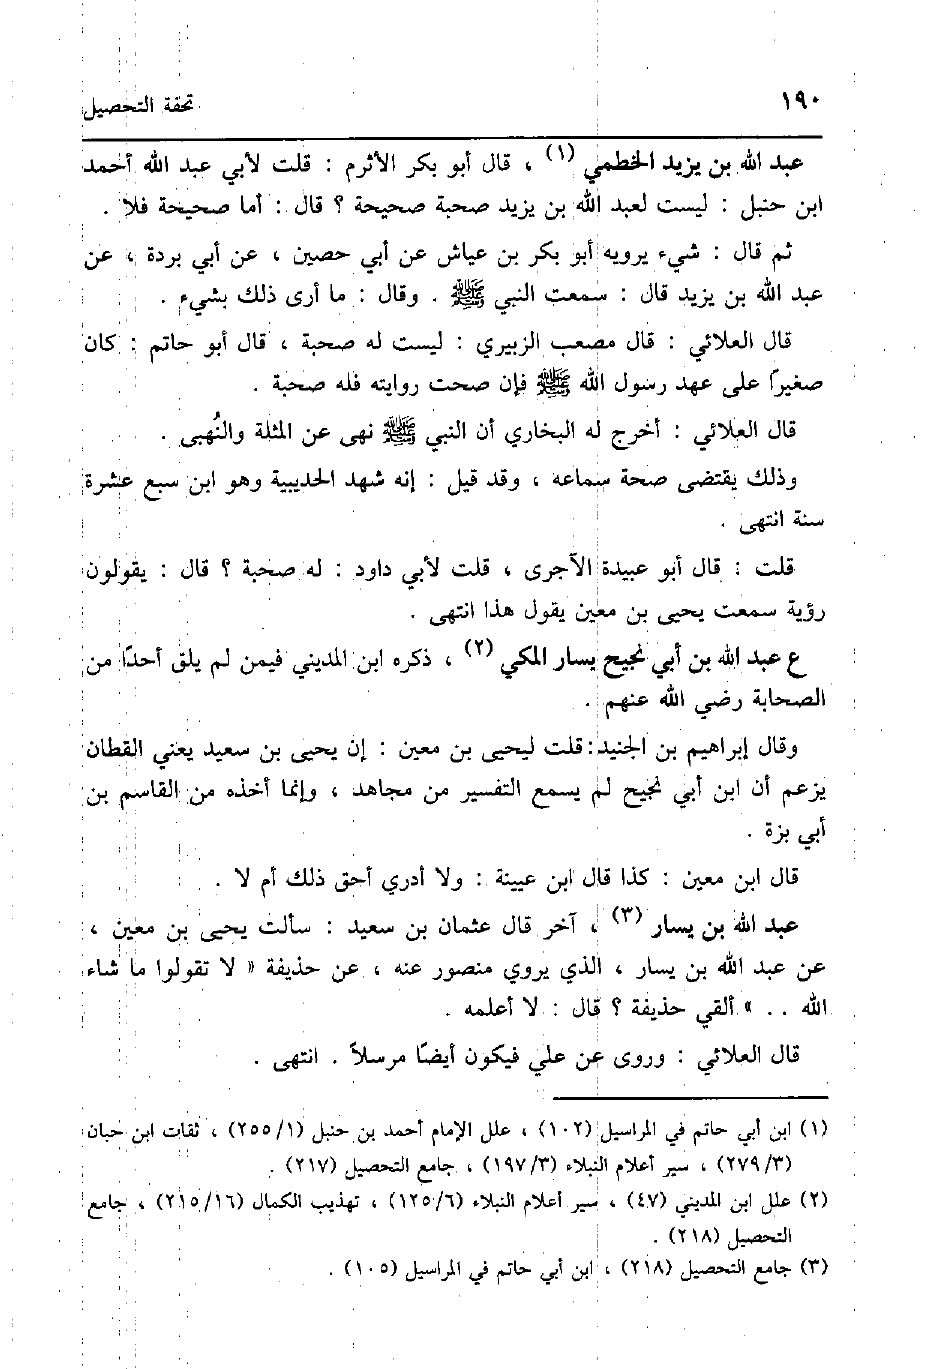 ١٩٠
تحفة التحصيل
عبد الله بن يزيد الخطمي (١) ، قال أبو بكر الأثرم : قلت لأبي عبد الله أحمد
ابن حنبل : ليست لعبد الله بن يزيد صحبة صحيحة ؟ قال : أما صحيحة فلا .
ثم قال : شيء يرويه أبو بكر بن عياش عن أبي حصين ، عن أبي بردة ، عن
عبد الله بن يزيد قال : سمعت النبي ﷺ . وقال : ما أرى ذلك بشيء .
قال العلائي : قال مصعب الزبيري : ليست له صحبة ، قال أبو حاتم : كان
صغيرًا على عهد رسول الله ﷺ فإن صحت روايته فله صحبة .
قال العلائي : أخرج له البخاري أن النبي ﷺ نهى عن المثلة والنُهبى .
وذلك يقتضى صحة سماعه ، وقد قيل : إنه شهد الحديبية وهو ابن سبع عشرة
سنة انتهى .
قلت : قال أبو عبيدة الآجرى ، قلت لأبي داود : له صحبة ؟ قال : يقولون
رؤية سمعت يحيى بن معين يقول هذا انتهى .
ع عبد الله بن أبي نجيح يسار المكي (٢) ، ذكره ابن المديني فيمن لم يلق أحدًا من
الصحابة رضي الله عنهم .
وقال إبراهيم بن الجنيد : قلت ليحيى بن معين : إن يحيى بن سعيد يعني القطان
يزعم أن ابن أبي نجيح لم يسمع التفسير من مجاهد ، وإنما أخذه من القاسم بن
أبي بزة .
قال ابن معين : كذا قال ابن عيينة : ولا أدري أحق ذلك أم لا .
عبد الله بن يسار (٣) ، آخر قال عثمان بن سعيد : سألت يحيى بن معين ،
عن عبد الله بن يسار ، الذي يروي منصور عنه ، عن حذيفة « لا تقولوا ما شاء
الله . . » ألقي حذيفة ؟ قال : لا أعلمه .
قال العلائي : وروى عن علي فيكون أيضًا مرسلاً . انتهى .
(١) ابن أبي حاتم في المراسيل (١٠٢) ، علل الإمام أحمد بن حنبل (٢٥٥/١) ، ثقات ابن حبان
(٢٧٩/٣) ، سير أعلام النبلاء (١٩٧/٣) ، جامع التحصيل (٢١٧) .
(٢) علل ابن المديني (٤٧) ، سير أعلام النبلاء (١٢٥/٦) ، تهذيب الكمال (٢١٥/١٦) ، جامع
التحصيل (٢١٨) .
(٣) جامع التحصيل (٢١٨) ، ابن أبي حاتم في المراسيل (١٠٥) .